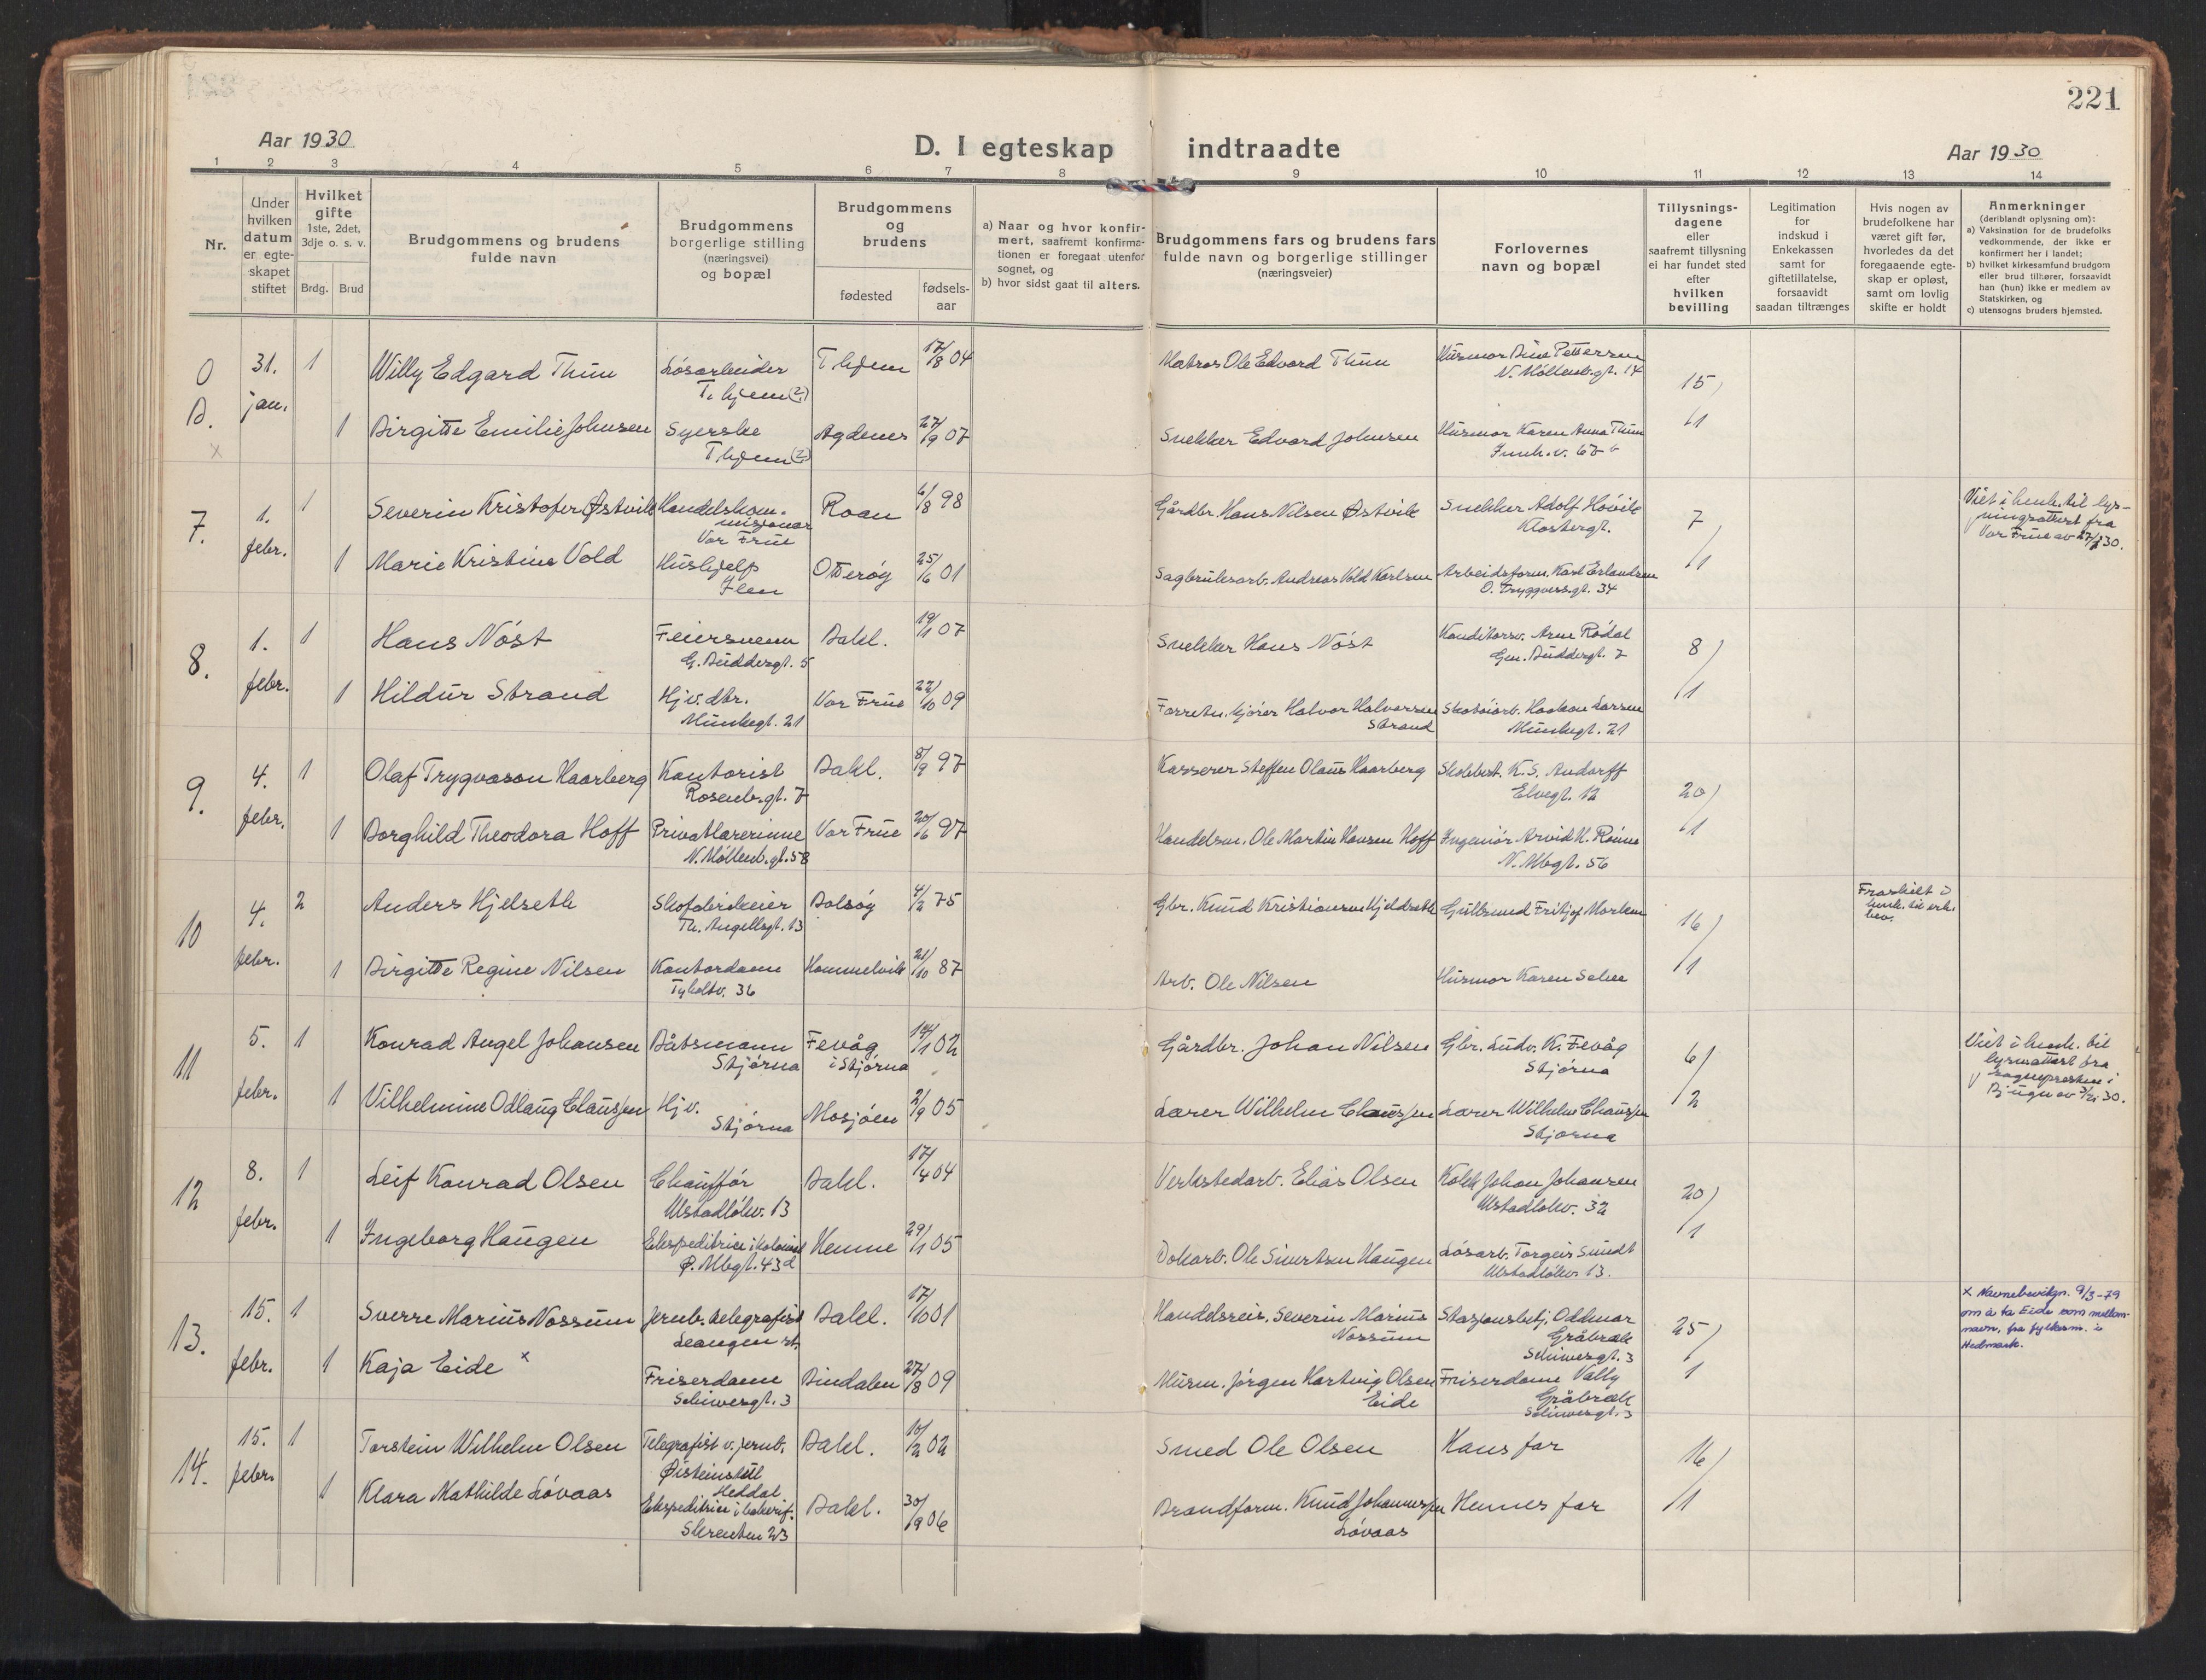 221
Aar 1930
D. I egteskap indtraadte
Aar 1930
1 2 3 4 5 6 7 8 9 10 11 12 13 14
Nr.
Under
hvilken
datum
er egte-
skapet
stiftet
Hvilket
gifte
1ste, 2det,
3dje o. s. v.
Brdg. Brud
Brudgommens og brudens
fulde navn
Brudgommens
borgerlige stilling
(næringsvei)
og bopæl
Brudgommens
og
brudens
fødested
fødsels-
aar
a) Naar og hvor konfir-
mert, saafremt konfirma-
tionen er foregaat utenfor
sognet, og
b) hvor sidst gaat til alters.
Brudgommens fars og brudens fars
fulde navn og borgerlige stillinger
(næringsveier)
Forlovernes
navn og bopæl
Tillysnings-
dagene
eller
saafremt tillysning
ei har fundet sted
efter
hvilken
bevilling
Legitimation
for
indskud i
Enkekassen
samt for
giftetillatelse,
forsaavidt
saadan tiltrænges
Hvis nogen av
brudefolkene har
været gift før,
hvorledes da det
foregaaende egte-
skap er opløst,
samt om lovlig
skifte er holdt
Anmerkninger
(deriblandt oplysning om):
a) Vaksination for de brudefolks
vedkommende, der ikke er
konfirmert her i landet;
b) hvilket kirkesamfund brudgom
eller brud tilhører, forsaavidt
han (hun) ikke er medlem av
Statskirken, og
c) utensogns bruders hjemsted.
O 31. 1 Willy Edgard Thun Løsarbeider T.hjem 17/8 04 Matros Ole Edvard Thun Husmor Dina Pettersen
T.hjem N. Møllenb.gt. 14
B. jan. 15/1
1 Birgitte Emilie Johnsen Syerske Agdenes 27/9 07 Snekker Edvard Johnsen Husmor Karen Anna Thun
T.hjem
7. 1. febr. 1 Severin Kristofer Østvik Handelskom-
misjonær
Vor Frue
Roan 6/8 98 Gårdbr. Hans Nilsen Østvik Snekker Adolf Høvik
Klostergt.
7/1
Viet i henh. til lys-
ningsattest fra
Vor Frue av 27/1 30.
1 Marie Kristine Vold Hushjelp
Ilen
Otterøy 25/6 01 Sagbruksarb. Andreas Vold Karlsen Arbeidsform. Karl Erlandsen
O. Tryggvas.gt. 34
8. 1. febr. 1 Hans Nøst Feiersvenn
G. Buddesgt. 5
Bakl. 19/1 07 Snekker Hans Nøst Konditorsv. Arne Rødal
Gen. Buddesgt. 7
8/1
1 Hildur Strand Hjv. dtr.
Munkegt. 21
Vor Frue 22/10 09 Forretn.kjører Halvor Halvorsen
Strand
Skotøiarb. Haakon Larsen
Munkegt. 21
9. 4. febr. 1 Olaf Trygvason Haarberg Kontorist
Rosenb.gt. 7
Bakl. 8/9 97 Kasserer Steffen Olaus Haarberg Skolebest. K. S. Andorff
Elvegt. 12
20/1
1 Borghild Theodora Hoff Privatlærerinne
N. Møllenb.gt. 58
Vor Frue 20/6 97 Handelsm. Ole Martin Hansen Hoff Ingeniør Arvid H. Rønne
N. Mbgt. 56
10 4. febr. 2 Anders Hjelseth
Th. Angellsgt. 13
Bolsøy 4/2 75 Gbr. Knud Kristiansen Hjeldseth Gullsmed Fritjof Morken
16/1
Fraskilt i
henh. til
bev.
1 Birgitte Regine Nilsen Kontordame
Tyholtv. 36
Hommelvik 21/10 87 Arb. Ole Nilsen Husmor Karen Selva
11 5. febr. 1 Konrad Angel Johansen Båtsmann
Stjørna
Fevåg
i Stjørna
14/1 02 Gårdbr. Johan Nilsen Gbr. Ludv. K. Fevåg
Stjørna
6/2
Viet i henh. til
lysn.attest fra
sognepresten i
Bjugn av 3/2 30.
1 Vilhelmine Odlaug Claussen Hjv.
Stjørna
Mosjøen 2/9 05 Lærer Wilhelm Claussen Lærer Wilhelm Claussen
Stjørna
12 8. febr. 1 Leif Konrad Olsen Chauffør
Ulstadløkv. 13
Bakl. 17/4 04 Verkstedarb. Elias Olsen Johan Johansen
Ulstadløkv. 32
20/1
1 Ingeborg Haugen Ekspeditrice i kolonial
Ø. Mbgt. 43d
Hemne 29/1 05 Dokarb. Ole Sivertsen Haugen Løsarb. Torgeir Sundt
Ulstadløkv. 13.
13. 15. febr. 1 Sverre Marius Nossum Jernb.telegrafist
Leangen st.
Bakl. 17/10 01 Handelsreis. Severin Marius
Nossum
Stasjonsbetj. Oddmar
Gråbræk
Schiwesgt. 3
25/1
x Navnebevilgn. 9/3-79
om å ta Eide som mellom-
navn, fra fylkesm. i
Hedmark.
1 Kaja Eide x Friserdame
Schiwesgt. 3
Bindalen 27/8 09 Murm. Jørgen Hartvig Olsen
Eide
Friserdame Vally
Gråbræk
Schiwesgt. 3
14. 15. febr. 1 Torstein Wilhelm Olsen Telegrafist v. jernb.
Heddal
Bakl. 10/2 02 Smed Ole Olsen Hans far
16/1
1 Klara Mathilde Løvaas Ekspeditrice i bakerif.
Skrenten 23
Bakl. 30/9 06 Brandform. Knud Johannessen
Løvaas
Hennes far